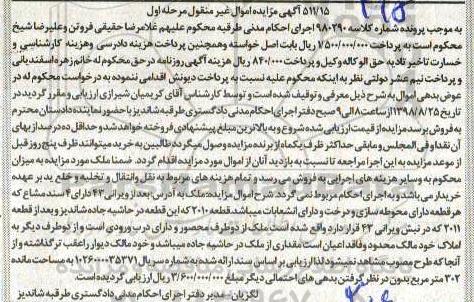 ۵۱۱/۱۵ آگهی مزایده اموال غیر منقول مرحله اول
به موجب پرونده شماره کلاسه ۹۸۰۳۹۰ اجرای احکام مدنی طرقبه محکوم علیهم غلامرضا حقیقی فروتن وعلیرضا شیخ
محکوم است به پرداخت ۱/۵۰۰/۰۰۰/۰۰۰ ریال بابت اصل خواسته وهمچنین پرداخت هزینه دادرسی وهزینه کارشناسی و
خسارت تاخیر تادیه حق الوکاله وکیل و پرداخت ۸۴۰/۰۰۰ ریال هزینه آگهی روزنامه در حق محکوم له خانم زهره اسفندیانی
و پرداخت نیم عشر دولتی نظر به اینکه محکوم علیه نسبت به پرداخت دیونش اقدامی ننموده به درخواست محکوم له در
عوض بدهی اموال به شرح ذیل معرفی و توقیف شده است و توسط کارشناس آقای کریمیان شیرازی ارزیابی و مقرر گردید در
تاریخ ۱۳۹۸/۸/۲۵ از ساعت ۸ الی ۹ صبح دفتر اجرای احکام مدنی دادگستری طرقبه شاندیز با حضور نماینده دادستان محترم
به فروش برسد مزایده از قیمت ارزیابی شده شروع و به بالاترین مبلغ پیشنهادی فروخته خواهد شد و حداقل ده درصد از بهای
آن نقدا و فی المجلس و مابقی حداکثر ظرف یکماه از برنده مزایده وصول میگردد طالبین به خرید میتوانند ظرف پنج روز قبل
از موعد مزایده به این اجرا مراجعه تا نسبت به بازدید آنان از اموال مورد مزایده اقدام گردد. ضمنا ملک مورد مزایده به میزان
محکوم به وسایر هزینه های اجرایی به فروش می رسد و تمام هزینه های مربوط به نقل وانتقال و تخلیه و خلع ید بر عهده
خریدار می باشد و به اجرای احکام مربوط نمی گردد. شرح ملک مورد مزایده: ملک به آدرس بعد از ویرانی ۴۳ دارای ۴ سند مشاع که
هر قطعه دارای محوطه سازی و درخت و دارای انشعابات میباشد قطعه ۲۰۱۰ که این قطعه در حاشیه جاده شاندیز و بعد از قطعه
۲۰۱۱ که در نبش ویرانی ۴۳ قرار دارد واقع شده است ملک از دوطرف محصور و دارای درب ورودی است و از دوطرف دیگر به
املاک خود مالک محدود و فاقد اعیان است مقداری از ملک در حاشیه جاده میباشد و خود مالک دیوار راعقب تر گذاشته و از
آنجا که طرح مصوب مشاهد نمیشود لذا ارزیابی بر اساس سند ارائه شده به شماره سریال ۱۰۲۶۰۰۰۰۳۵۲۷۱ به مساحت مانده
۳۰۲ متر مربع بدون در نظر گرفتن بدهی های احتمالی دیگر مبلغ ۳/۶۰۰/۰۰۰/۰۰۰ ریال ارزیابی گردیده است.
لگزیان - مدیر دفتر اجرای احکام مدنی دادگستری طرقبه شاندیز